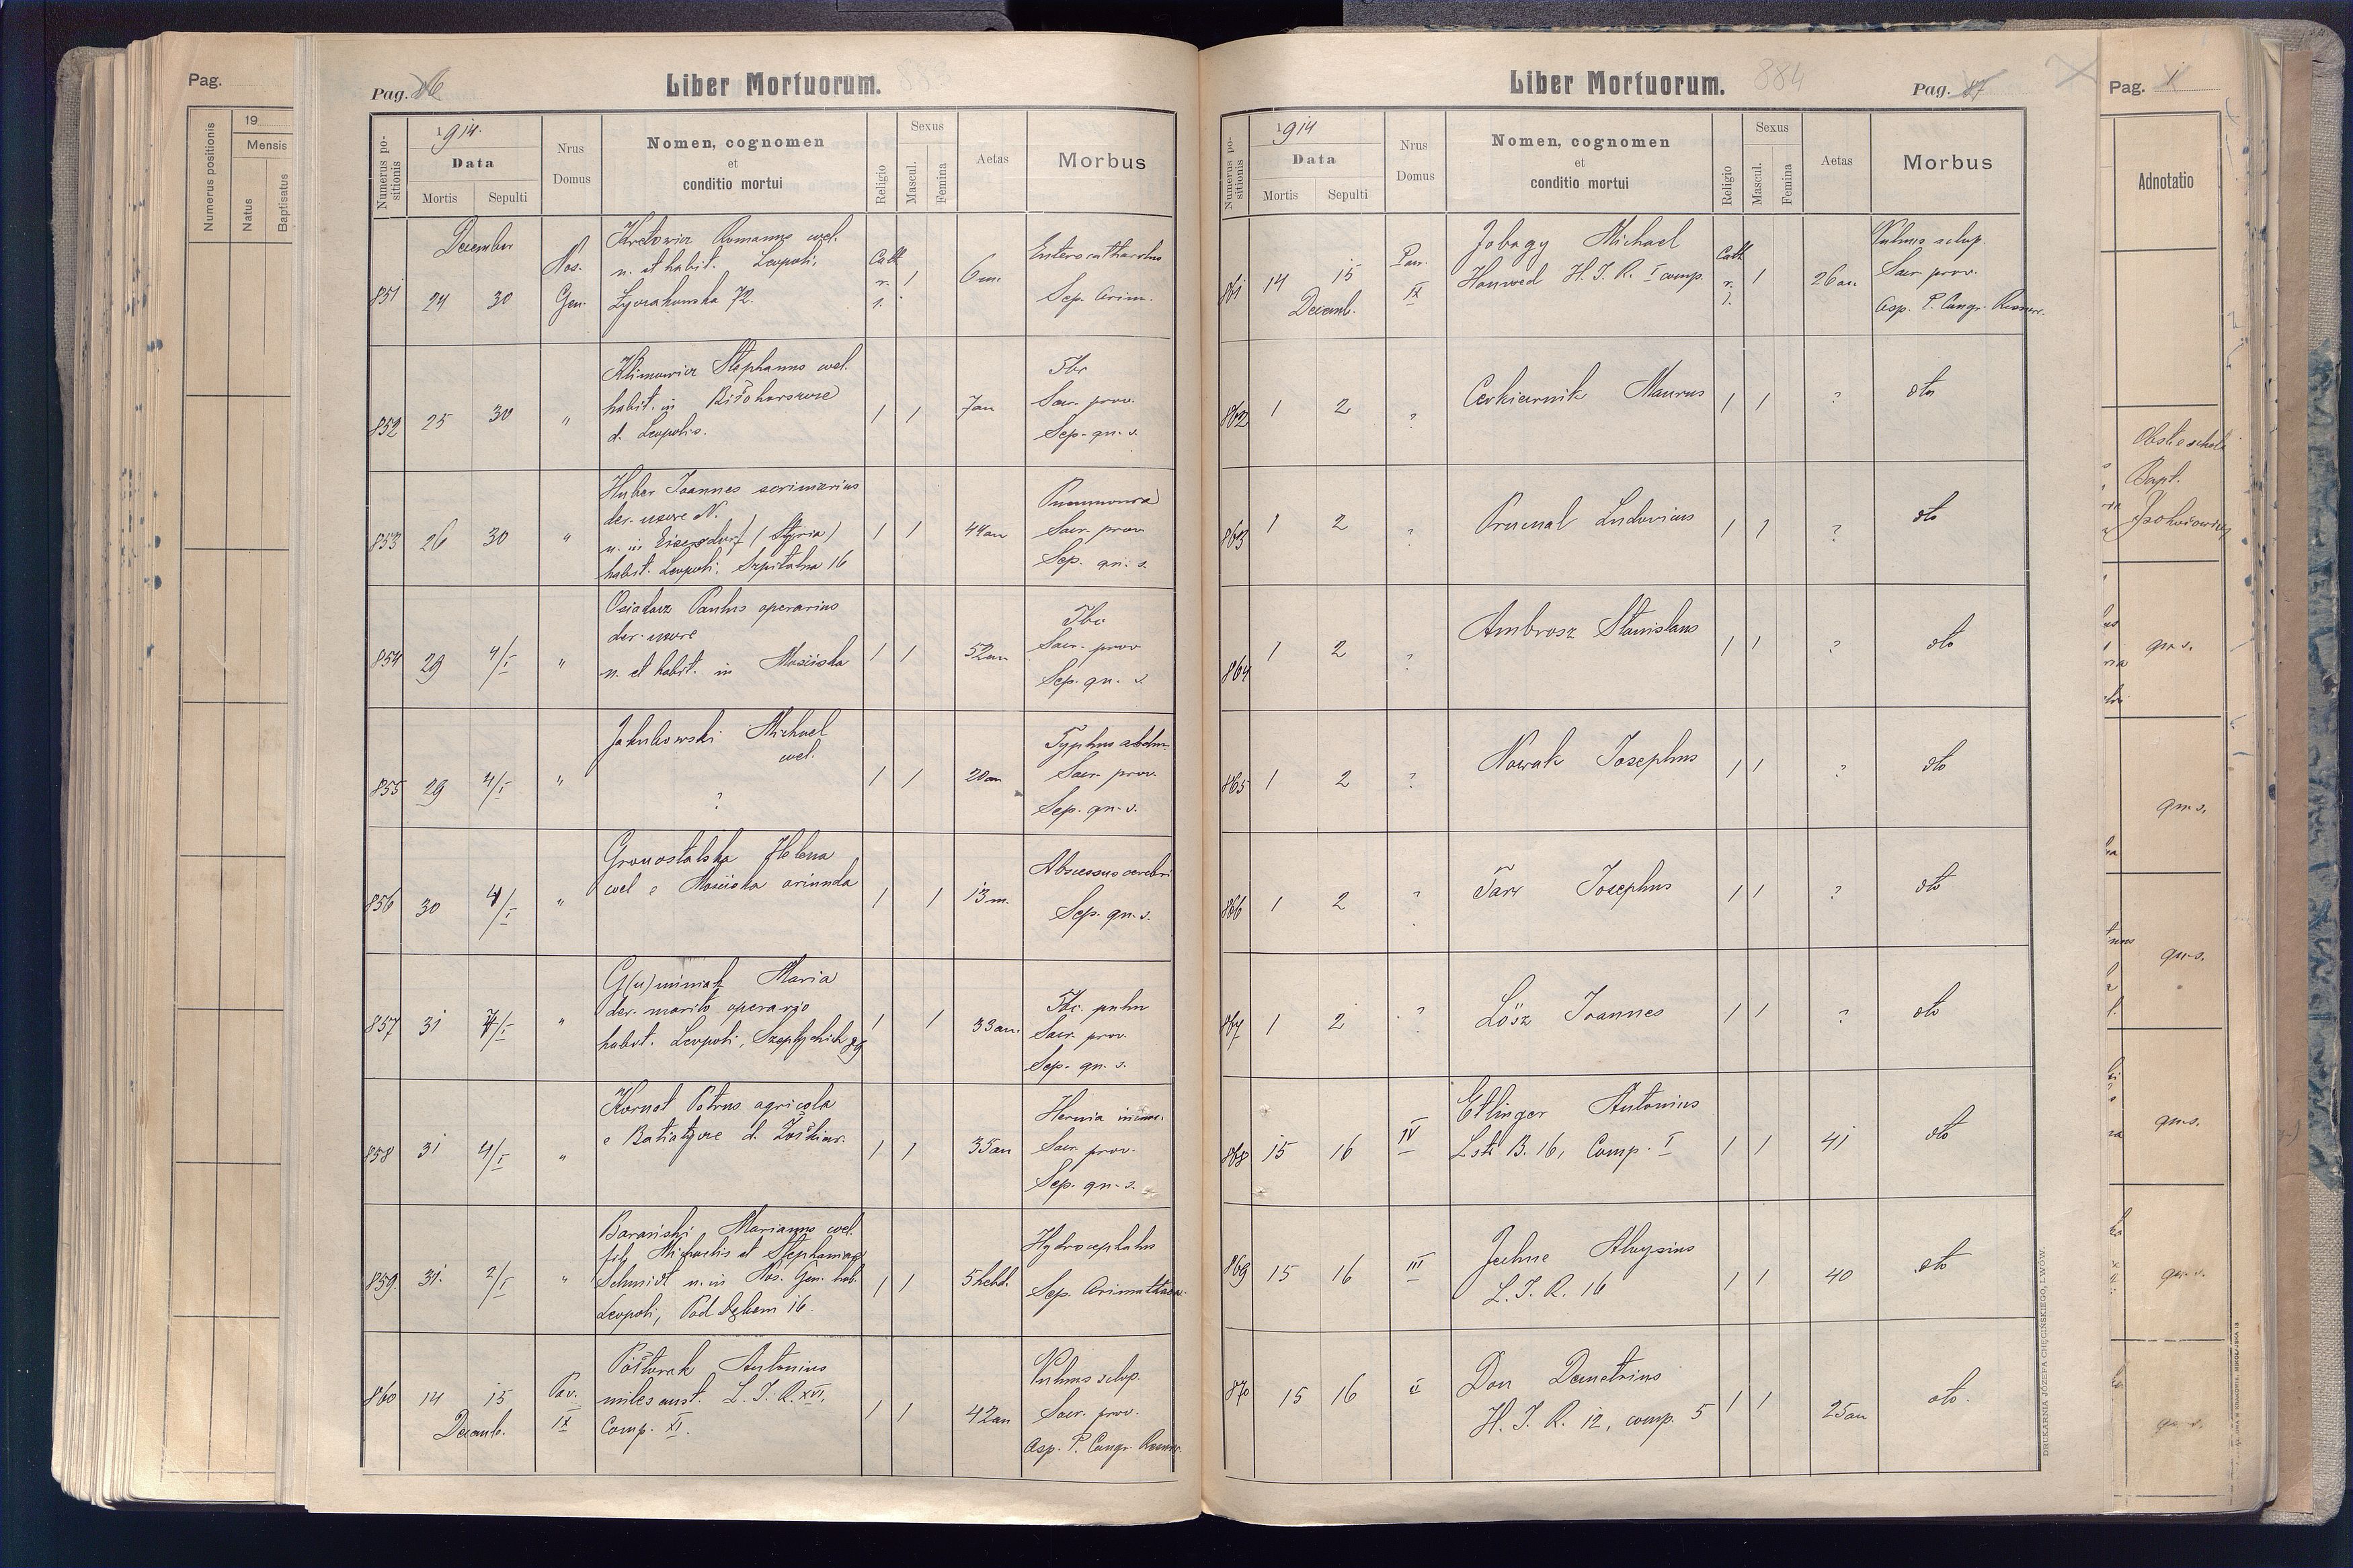 Pag.
Numerus positionis
19
Mensis
Natus
Baptisatus
Pag. 86
Liber Mortuorum.
Numerus positionis
1914.
Data
Mortis Sepulti
Nrus Domus
Nomen, cognomen
et
conditio mortui
Religio
Sexus
Mascul.
Femina
Aetas
Morbus
December
851 24 30 Nos. Gen.
Kretowicz Romanus coel.
n. et habit. Leopoli,
Łyczakowska 72.
Cath r. l. 1 6 m.
Enterocatharrhus
Sep. Arim.
852 25 30 "
Klimowicz Stephanus coel.
habit. in
d. Leopolis.
1 1 7 an
Tbc
Sacr. prov.
Sep. qu. s.
853 26 30 "
Huber Joannes scriniarius
der. uxore N.
n. in Eisersdorf (Styria)
habit. Leopoli, Szpitalna 16
1 1 44 an
Pneumonia
Sacr. prov
Sep. qu. s.
854 29 4/I "
Osiadacz Paulus operarius
der. uxore
n. et habit. in Mościska
1 1 52 an
Tbc
Sacr. prov
Sep. qu. s.
855 29 4/I "
Jakubowski Michael
coel.
?
1 1 20 an
Typhus abdm.
Sacr. prov.
Sep. qu. s.
856 30 4/I "
Gronostalska Helena
coel e Mościska oriunda
1 1 13 m.
Abscessus cerebri
Sep. qu. s.
857 31 4/I "
G(u)miniak Maria
der. marito operario
habit. Leopoli, Szeptyckich 89
1 1 33 an.
Tbc. pulm
Sacr. prov.
Sep. qu. s.
858 31 4/I "
Kornat Petrus agricola
e Batiatycze d. Żółkiew.
1 1 35 an
Hernia
Sacr. prov.
Sep. qu. s.
859. 31. 2/I "
Barański Marianus coel.
fil. Michaelis et Stephaniae
Schmidt n. in Nos. Gen. hab.
Leopoli, Pod Dębem 16.
1 1 5 hebd.
Hydrocephalus
Sep. Arimathaea.
860 14 15 Pav. IX
Decemb.
Pósturak Antonius
miles aust. L. I. R. XVI,
Comp. XI.
1 1 42 an
Vulnus sclop.
Sacr. prov.
Asp. P. Congr. Resurr.
Liber Mortuorum. 884
Pag. 87
Numerus positionis
1914
Data
Mortis Sepulti
Nrus Domus
Nomen, cognomen
et
conditio mortui
Religio
Sexus
Mascul.
Femina
Aetas
Morbus
861 14 15 Pav. IX
Decemb.
Jobagy Michael
Honwed H. I. R. I comp.
Cath r. l. 1 26 an.
Vulnus sclop.
Sacr. prov.
Asp. P. Congr. Resurr.
862 1 2 ? Cerkiernik Maurus 1 1 ? dto
863 1 2 ? Prucnal Ludovicus 1 1 ? dto
864 1 2 ? Ambrosz Stanislaus 1 1 ? dto
865 1 2 ? Nowak Josephus 1 1 ? dto
866 1 2 ? Tarr Josephus 1 1 ? dto
867 1 2 ? Lösz Joannes 1 1 ? dto
868 15 16 IV
Etlinger Antonius
Lst. B. 16, Comp. I
1 1 41 dto
869 15 16 III
Jechne Aloysius
L. I. R. 16
1 1 40 dto
870 15 16 II
Don Demetrius
H. I. R. 12, comp. 5
1 1 25 an dto.
DRUKARNIA JÓZEFA CHĘCIŃSKIEGO, LWÓW.
Pag. 1
Adnotatio
Bapt.
qu. s.
qu. s.
qu. s.
qu. s.
qu. s.
qu. s.